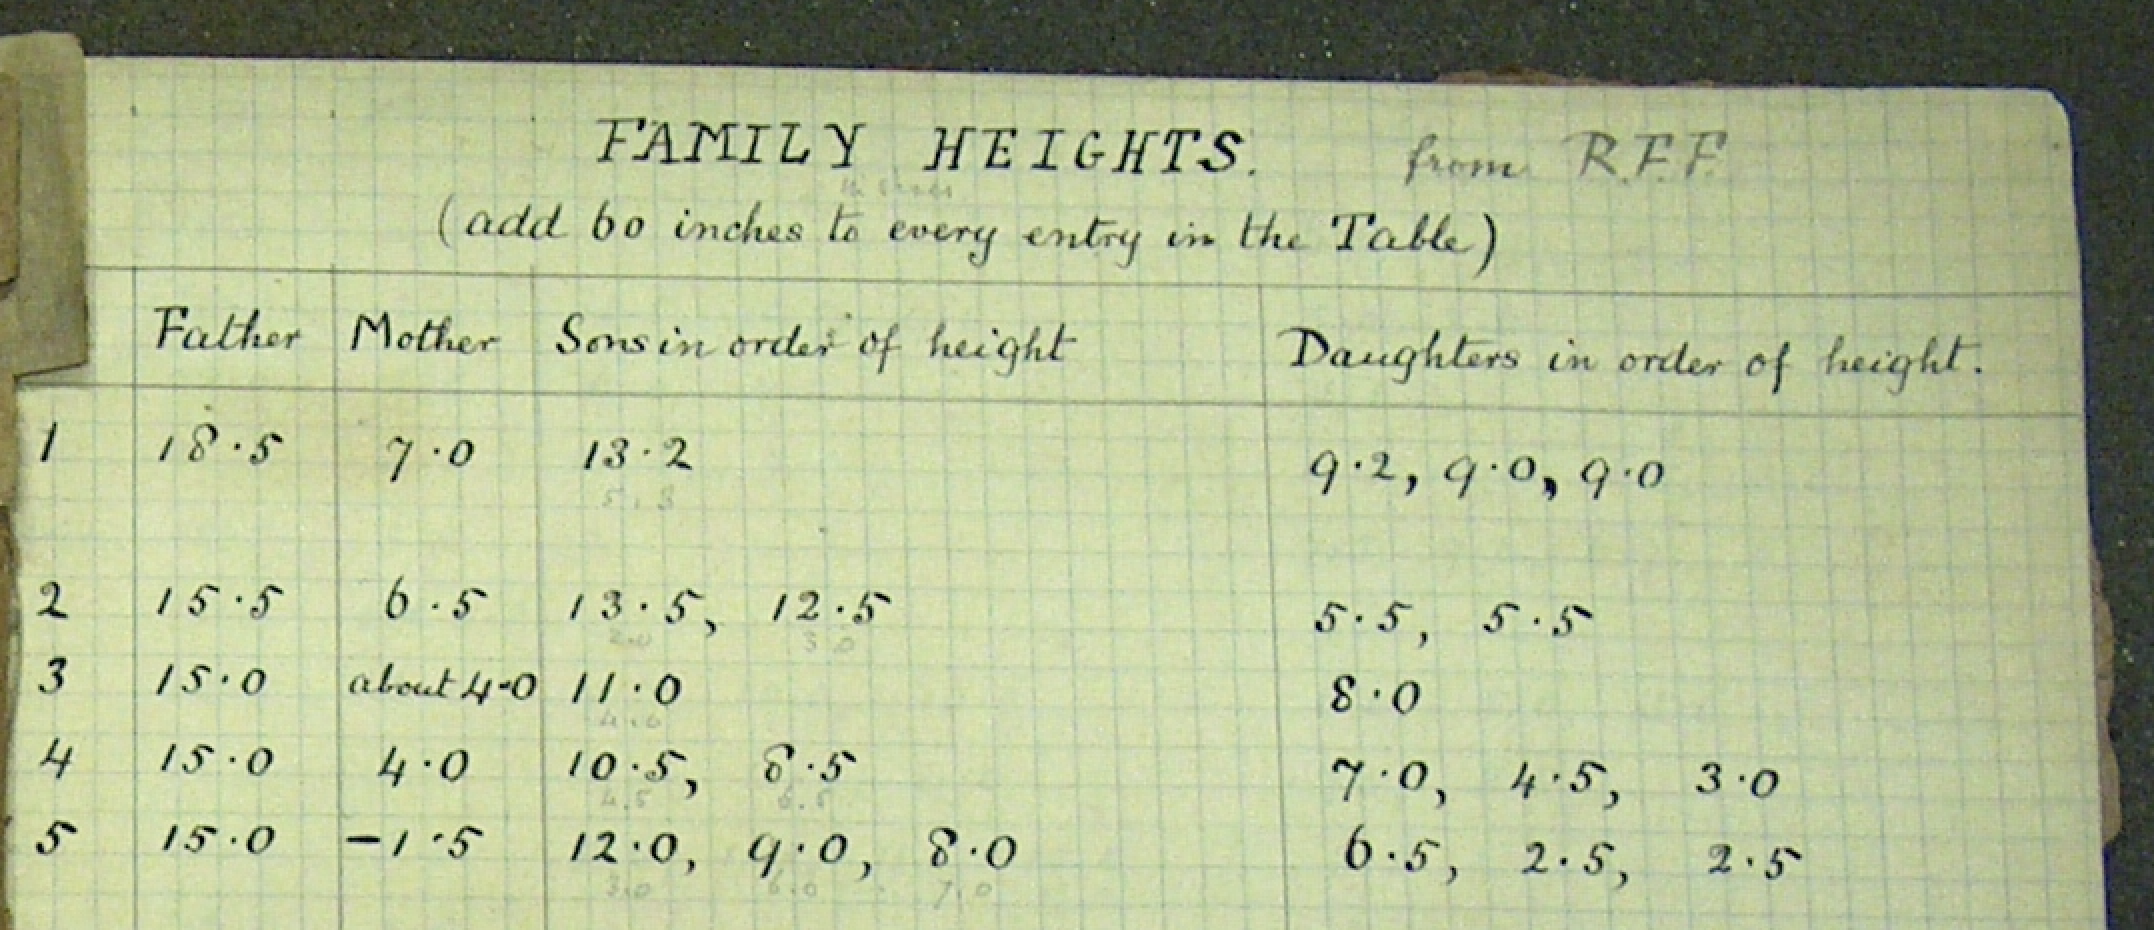 FAMILY HEIGHTS. from R.F.F.
(add 60 inches to every entry in the Table)
Father Mother Sons in order of height Daughters in order of height.
1 18·5 7·0 13·2 9·2, 9·0, 9·0
5.3
2 15·5 6·5 13·5, 12·5 5·5, 5·5
2.0 3.0
3 15·0 about 4·0 11·0 8·0
4.0
4 15·0 4·0 10·5, 8·5 7·0, 4·5, 3·0
4.5 6.5
5 15·0 -1·5 12·0, 9·0, 8·0 6·5, 2·5, 2·5
3.0 6.0 7.0